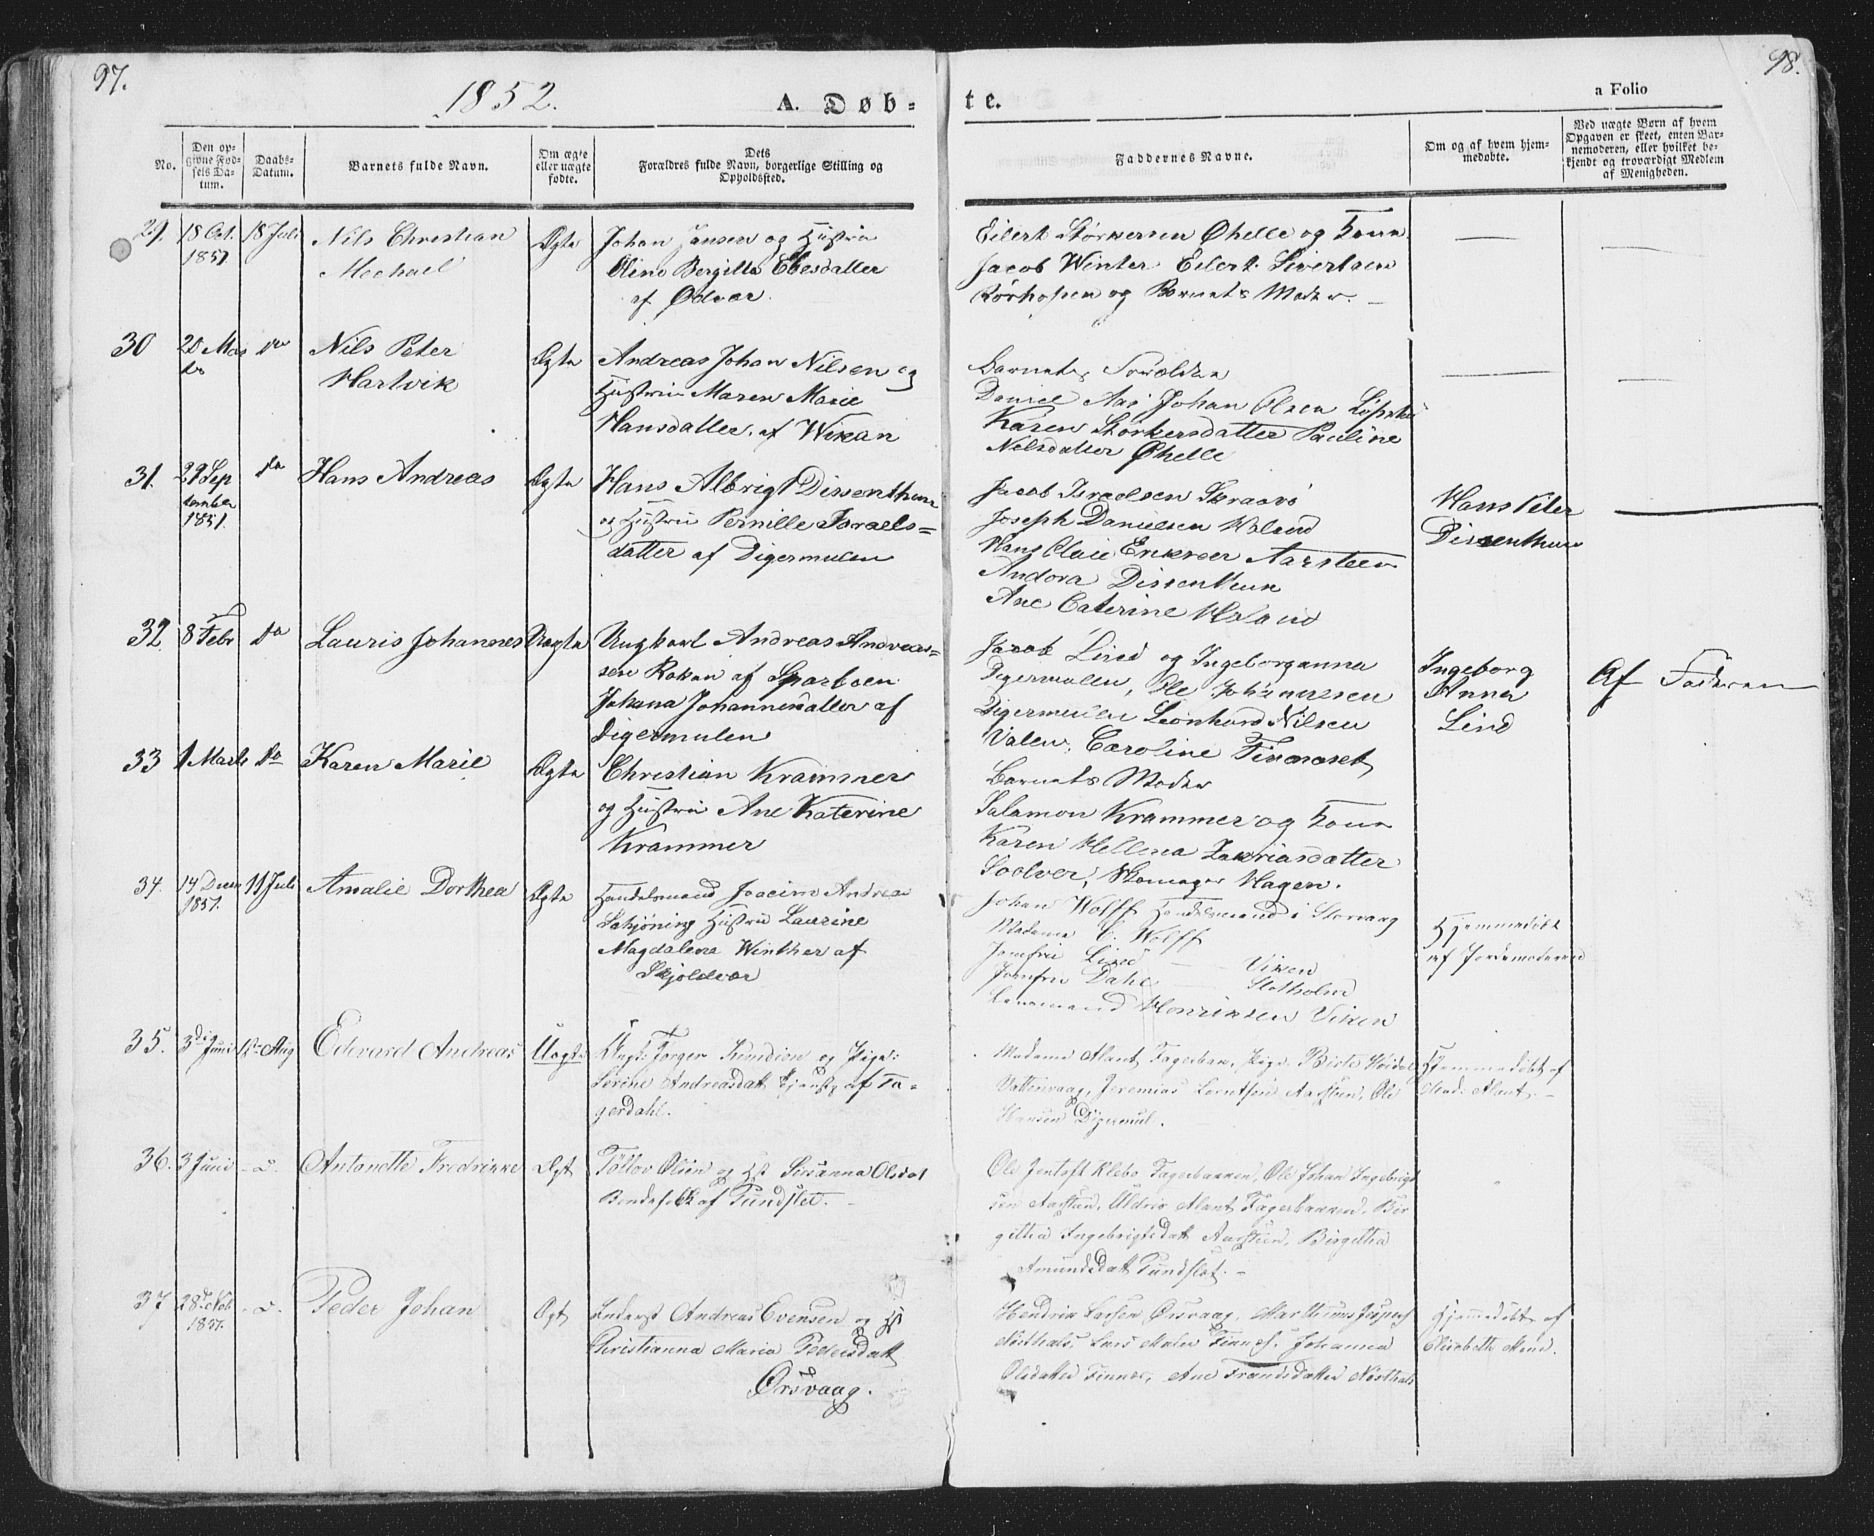 97.
1852.
A. Døb-
te.
a Folio
98.
No.
Den op-
givne Fød-
sels Da-
tum.
Daabs-
Datum.
Barnets fulde Navn.
Om ægte
eller uægte
fødte.
Dets
Forældres fulde Navn, borgerlige Stilling og
Opholdssted.
Faddernes Navne.
Om og af hvem hjem-
medøbte.
Ved uægte Børn af hvem
Opgaven er skeet, enten Bar-
nemoderen, eller hvilket be-
kjendt og troværdigt Medlem
af Menigheden.
29.
18 Oct.
1851
18 Juli
Nils Christian
Mechael
Ægte
Johan Jansen og Hustru
Oline Bergitte Ebesdatter
af Ødvær.
Eilert Størkersen Øhelle og Kone
Jacob Winter Eilert Sivertsen
Rørhopen og Barnets Moder.
30
20 Mai
do
Do
Nils Peter
Hartvik
Ægte
Andreas Johan Nilsen og
Hustru Maren Marie
Hansdatter af Wikan
Barnets Forældre
Daniel Aas Johan Olsen
Karen Størkersdatter Pauline
Nilsdatter Øhelle
31.
29 Sep
tember
1851.
Do
Hans Andreas
Ægte
Hans Albrigt Dissenthun
og Hustru Pernille Israels=
datter af Digermulen
Jacob Israelsen
Joseph Danielsen Holand
Hans Olaie Aarsteen
Andora Dissenthun
Ane Caterine Holand
Hans Peter
Dissenthun
32
8 Febr
Do
Lauris Johannes
Uægte
Ungkarl Andreas Andreas=
sen Rokan af Sparboen
Johana Johannesdatter af
Digermulen
Jacob Lind og Ingeborganna
Digermulen, Ole Johannesen
Digermulen Leonhard Nilsen
Valen, Caroline Finnæset
Barnets Moder
Ingeborg
Anna
Lind
Af Faderen
33
1 Marts
Do
Karen Marie
Ægte
Christian Krammer
og Hustru Ane Katerine
Krammer
Salamon Krammer og Kone
Karen Hellena Zakriasdatter
Soolver, Hagen.
34.
14 Decem
1851.
11 Juli
Amalie Dorthea
Ægte
Handelsmand Joacim Andreas
Hustru Laurine
Magdalena Winther af
Skjoldvær
Johan Wolff Handelsmand i Storvaag
Madame Wolff
Jomfru Lind — Viken
Jomfru Dahl — Slotholm
Lensmand Henriksen Viken
Hjemmedøbt
af Jordemoderen
35.
3die Juni
12te Aug
Edvard Andreas
Uægte
Ungk: Torger og Pige:
Sørine Andreasdatt af Fa-
gerdahl.
Madame Alant Fagerbak, Pige Birte
Vatterwaag, Jeremias Lorntsen Aarsteen, Ole
Hansen Digermul.
Hjemmedøbt af
Mad: Alant. -
36.
3 Juni
- d.
Antonette Fredrikke
Ægt
Tollov Olsen og Hst Susanna Olsdat
Bondefolk af Tundslet. -
Ole Jentoft Klebo Fagerbakken, Ole Johan Ingebrigt
sen Aarsteen, Uldrik Alant Fagerbakken, Bir
githa Ingebrigtsdatt Aarsteen, Birgitha
Amundsdatt Tundslet. -
37
28de Nob
1851.
- d.
Peder Johan
Ægt
Inderst Andreas Evensen og Hst
Christianna Maria Pedersdatt
Ørsvaag.
Hendrik Larsen Ørsvaag, Marthinus
Lars Finnes. Johanna
Olsdatter Finnes, Ane Frandsdatter
Hjemmedøbt af
Elisabeth